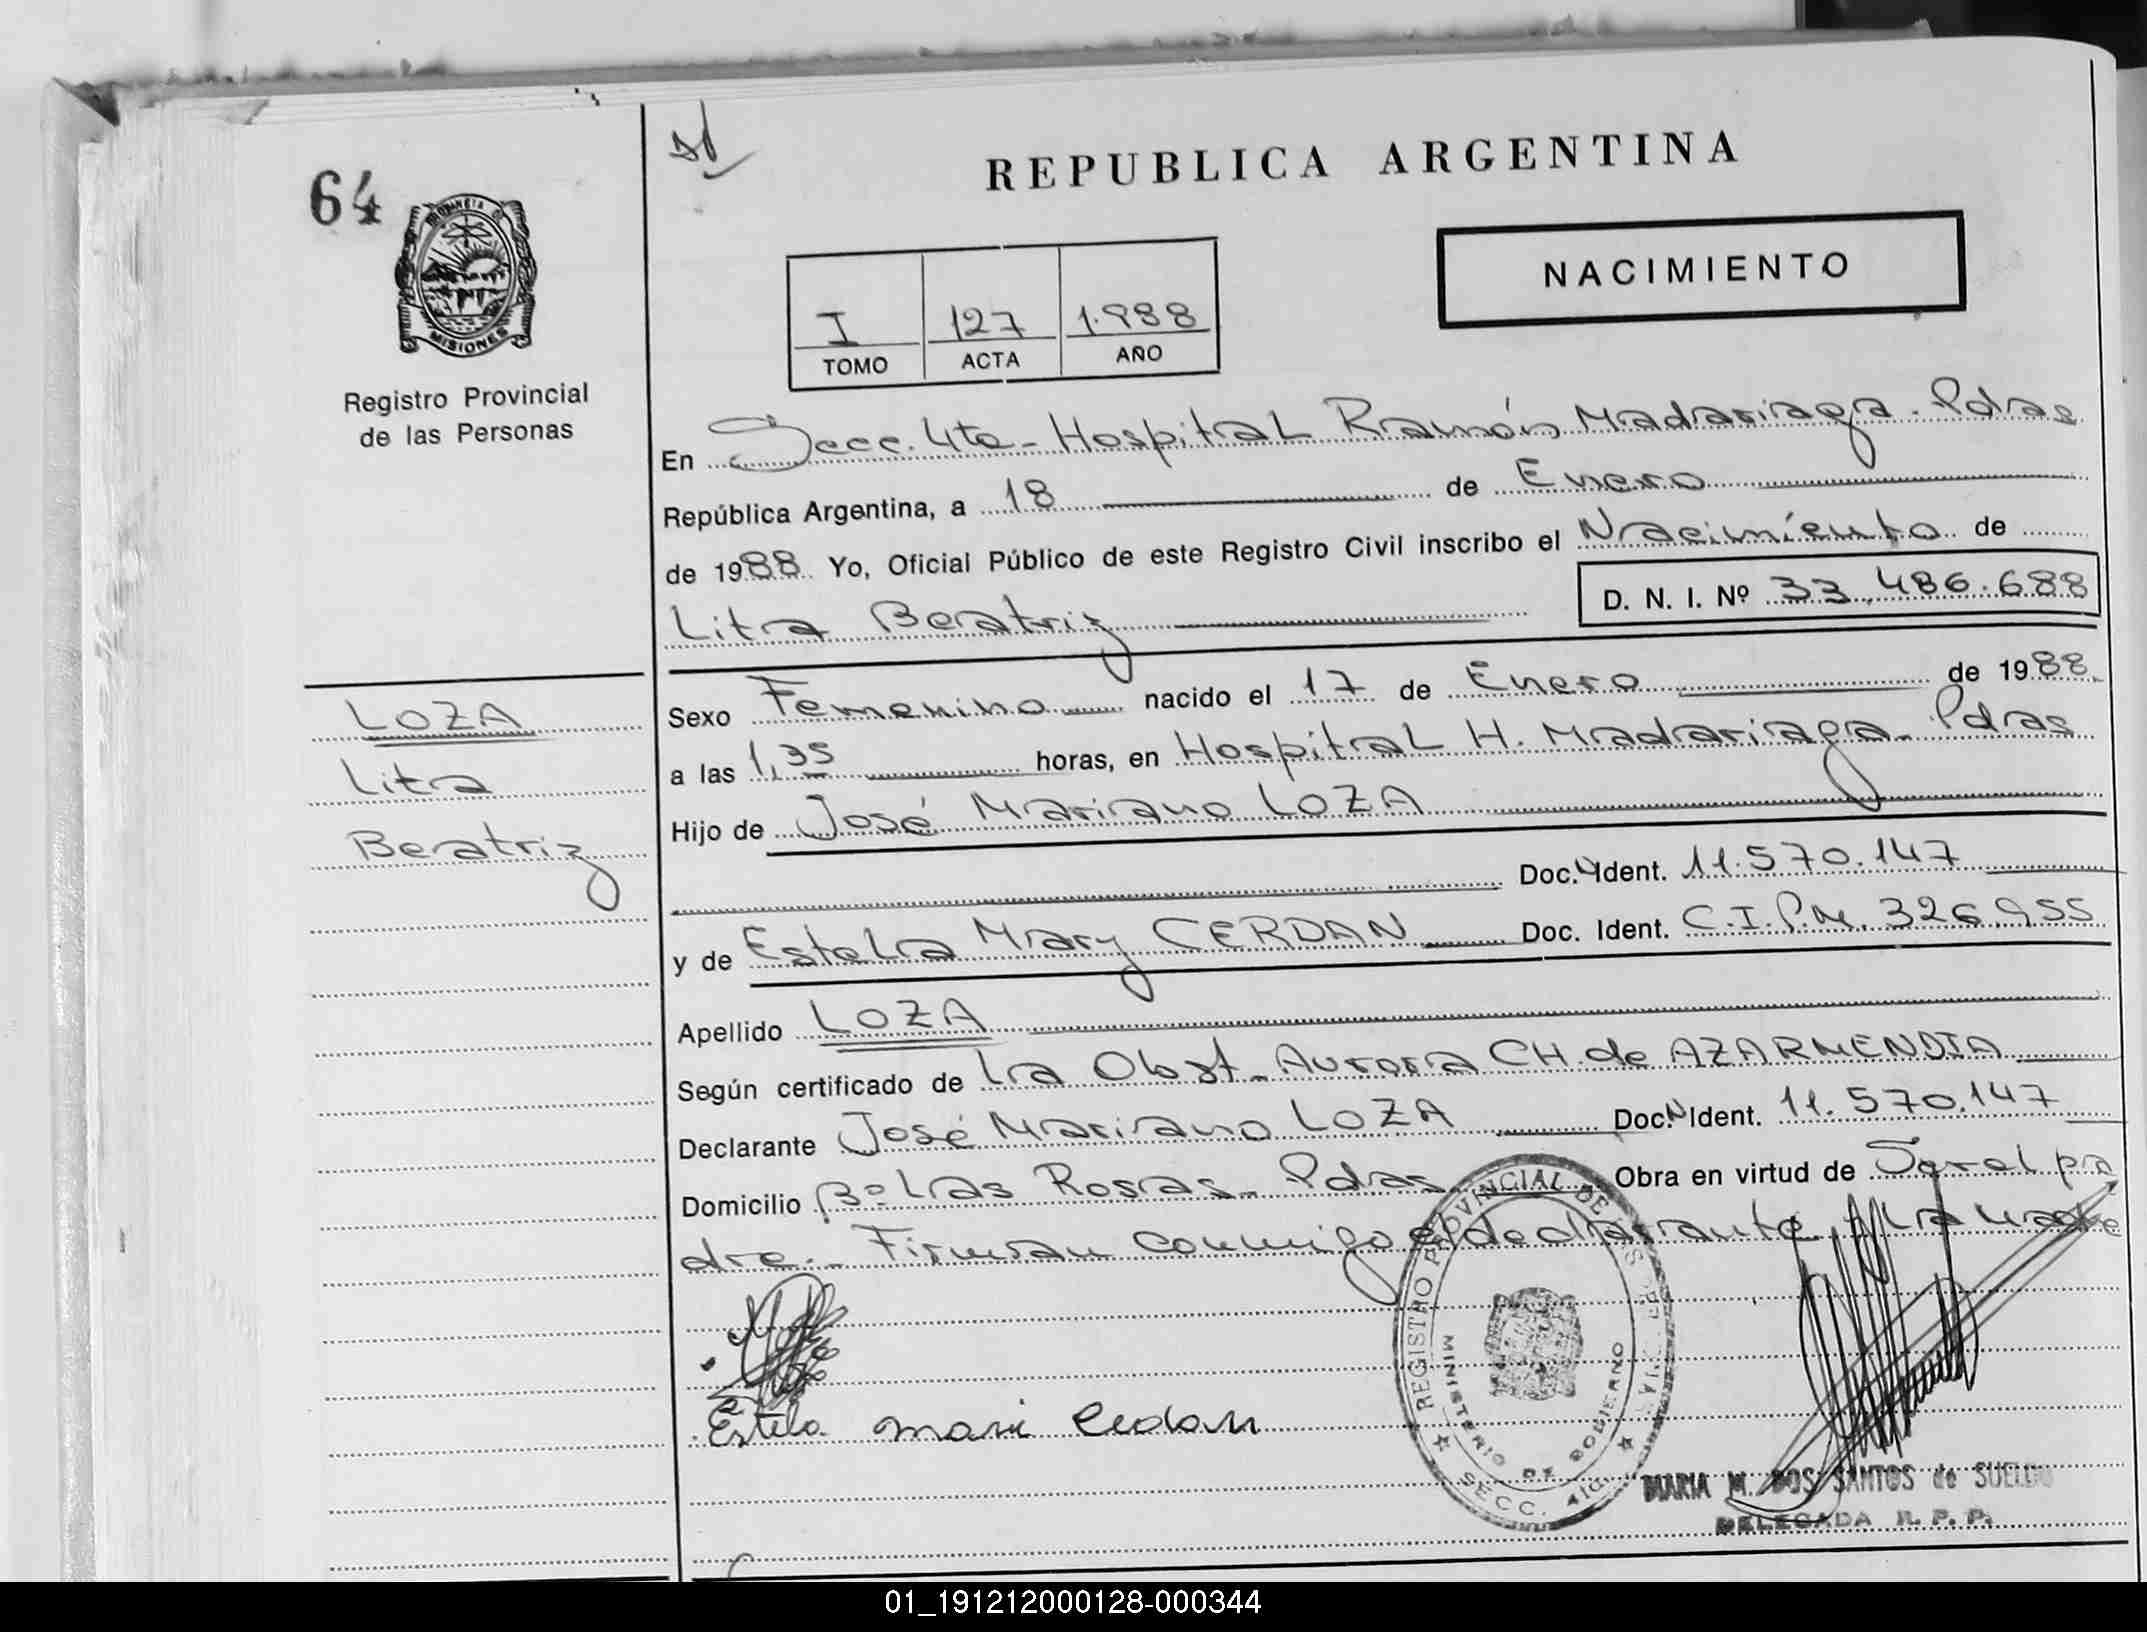 64
PROVINCIA DE
MISIONES
Registro Provincial
de las Personas
REPUBLICA ARGENTINA
NACIMIENTO
I 127 1.988
TOMO ACTA AÑO
En Secc. 4ta - Hospital Ramón Madariaga - Pdas
República Argentina, a 18 de Enero
de 1988 Yo, Oficial Público de este Registro Civil inscribo el Nacimiento de
Lita Beatriz D. N. I. Nº 33.486.688
LOZA
Lita
Beatriz
Sexo Femenino nacido el 17 de Enero de 1988
a las 1,35 horas, en Hospital H. Madariaga - Pdas
Hijo de José Mariano LOZA
Doc. Ident. 11.570.147
y de Estela Mary CERDAN Doc. Ident. C.I.P.M. 326.955
Apellido LOZA
Según certificado de La Obst. Aurora CH. de AZARMENDIA
Declarante José Mariano LOZA Doc. N Ident. 11.570.147
Domicilio Bº Las Rosas - Pdas Obra en virtud de Ser el pa
dre. - Firman conmigo el declarante y la madre
Estela mari Cerdan
REGISTRO PROVINCIAL DE LAS PERSONAS
MINISTERIO DE GOBIERNO
SECC. 4ta
MARIA M. DOS SANTOS de SUELDO
DELEGADA R. P. P.
01_191212000128-000344